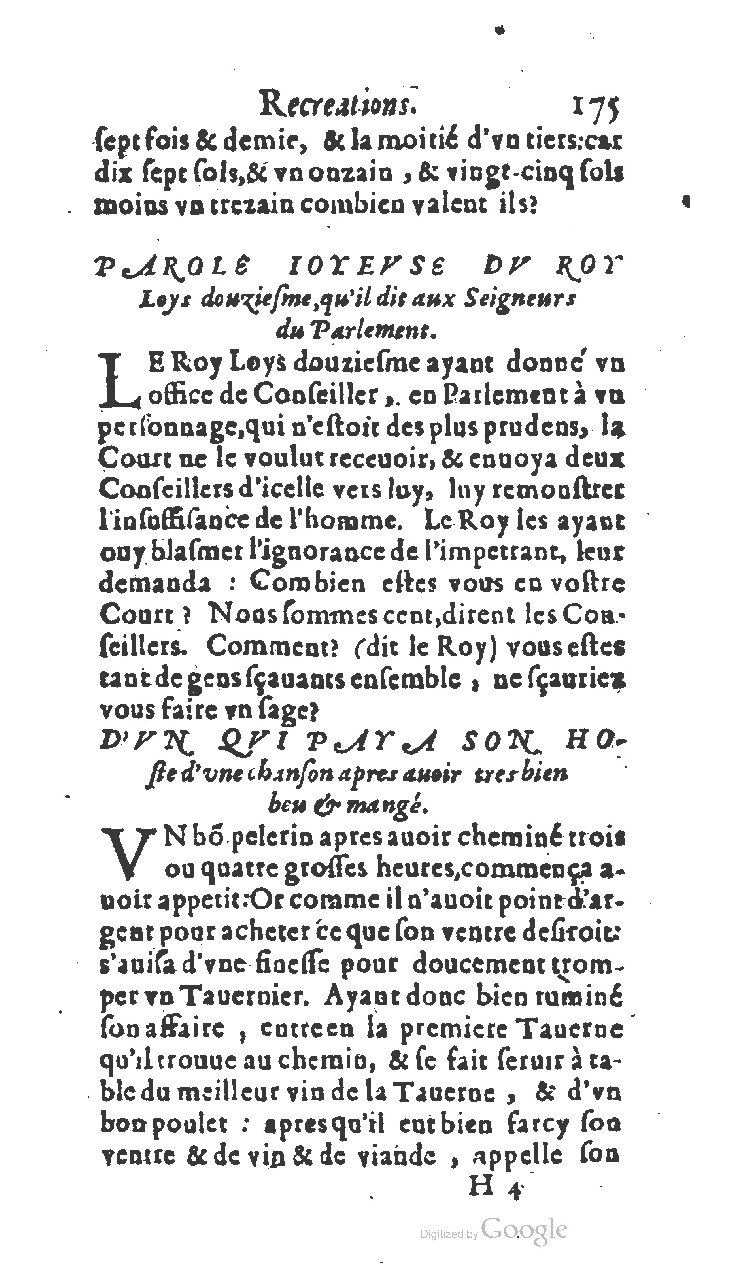 Recreations. 175
ſept fois & demie, & la moitié d'vn tiers: car
dix ſept ſols, & vn onzain, & vingt-cinq ſols
moins vn trezain combien valent ils?
PAROLE IOYEVSE DV ROY
Loys douzieſme, qu'il dit aux Seigneurs
du Parlement.
LE Roy Loys douzieſme ayant donné vn
office de Conſeiller, en Parlement à vn
perſonnage, qui n'eſtoit des plus prudens, la
Court ne le voulut receuoir, & enuoya deux
Conſeillers d'icelle vers luy, luy remonſtrer
l'inſuffiſance de l'homme. Le Roy les ayant
ouy blaſmer l'ignorance de l'impetrant, leur
demanda : Combien eſtes vous en voſtre
Court ? Nous ſommes cent, dirent les Con-
ſeillers. Comment? (dit le Roy) vous eſtes
tant de gens ſçauants enſemble, ne ſçauriez
vous faire vn ſage?
D'VN QVI PAYA SON HO-
ſte d'vne chanſon apres auoir tresbien
beu & mangé.
VN bõ pelerin apres auoir cheminé trois
ou quatre groſſes heures, commença a-
uoir appetit: Or comme il n'auoit point d'ar-
gent pour acheter ce que ſon ventre deſiroit:
s'auiſa d'vne fineſſe pour doucement trom-
per vn Tauernier. Ayant donc bien ruminé
ſon affaire, entre en la premiere Tauerne
qu'il trouue au chemin, & ſe fait ſeruir à ta-
ble du meilleur vin de la Tauerne, & d'vn
bon poulet : apres qu'il eut bien farcy ſon
ventre & de vin & de viande, appelle ſon
H 4
Digitized by Google